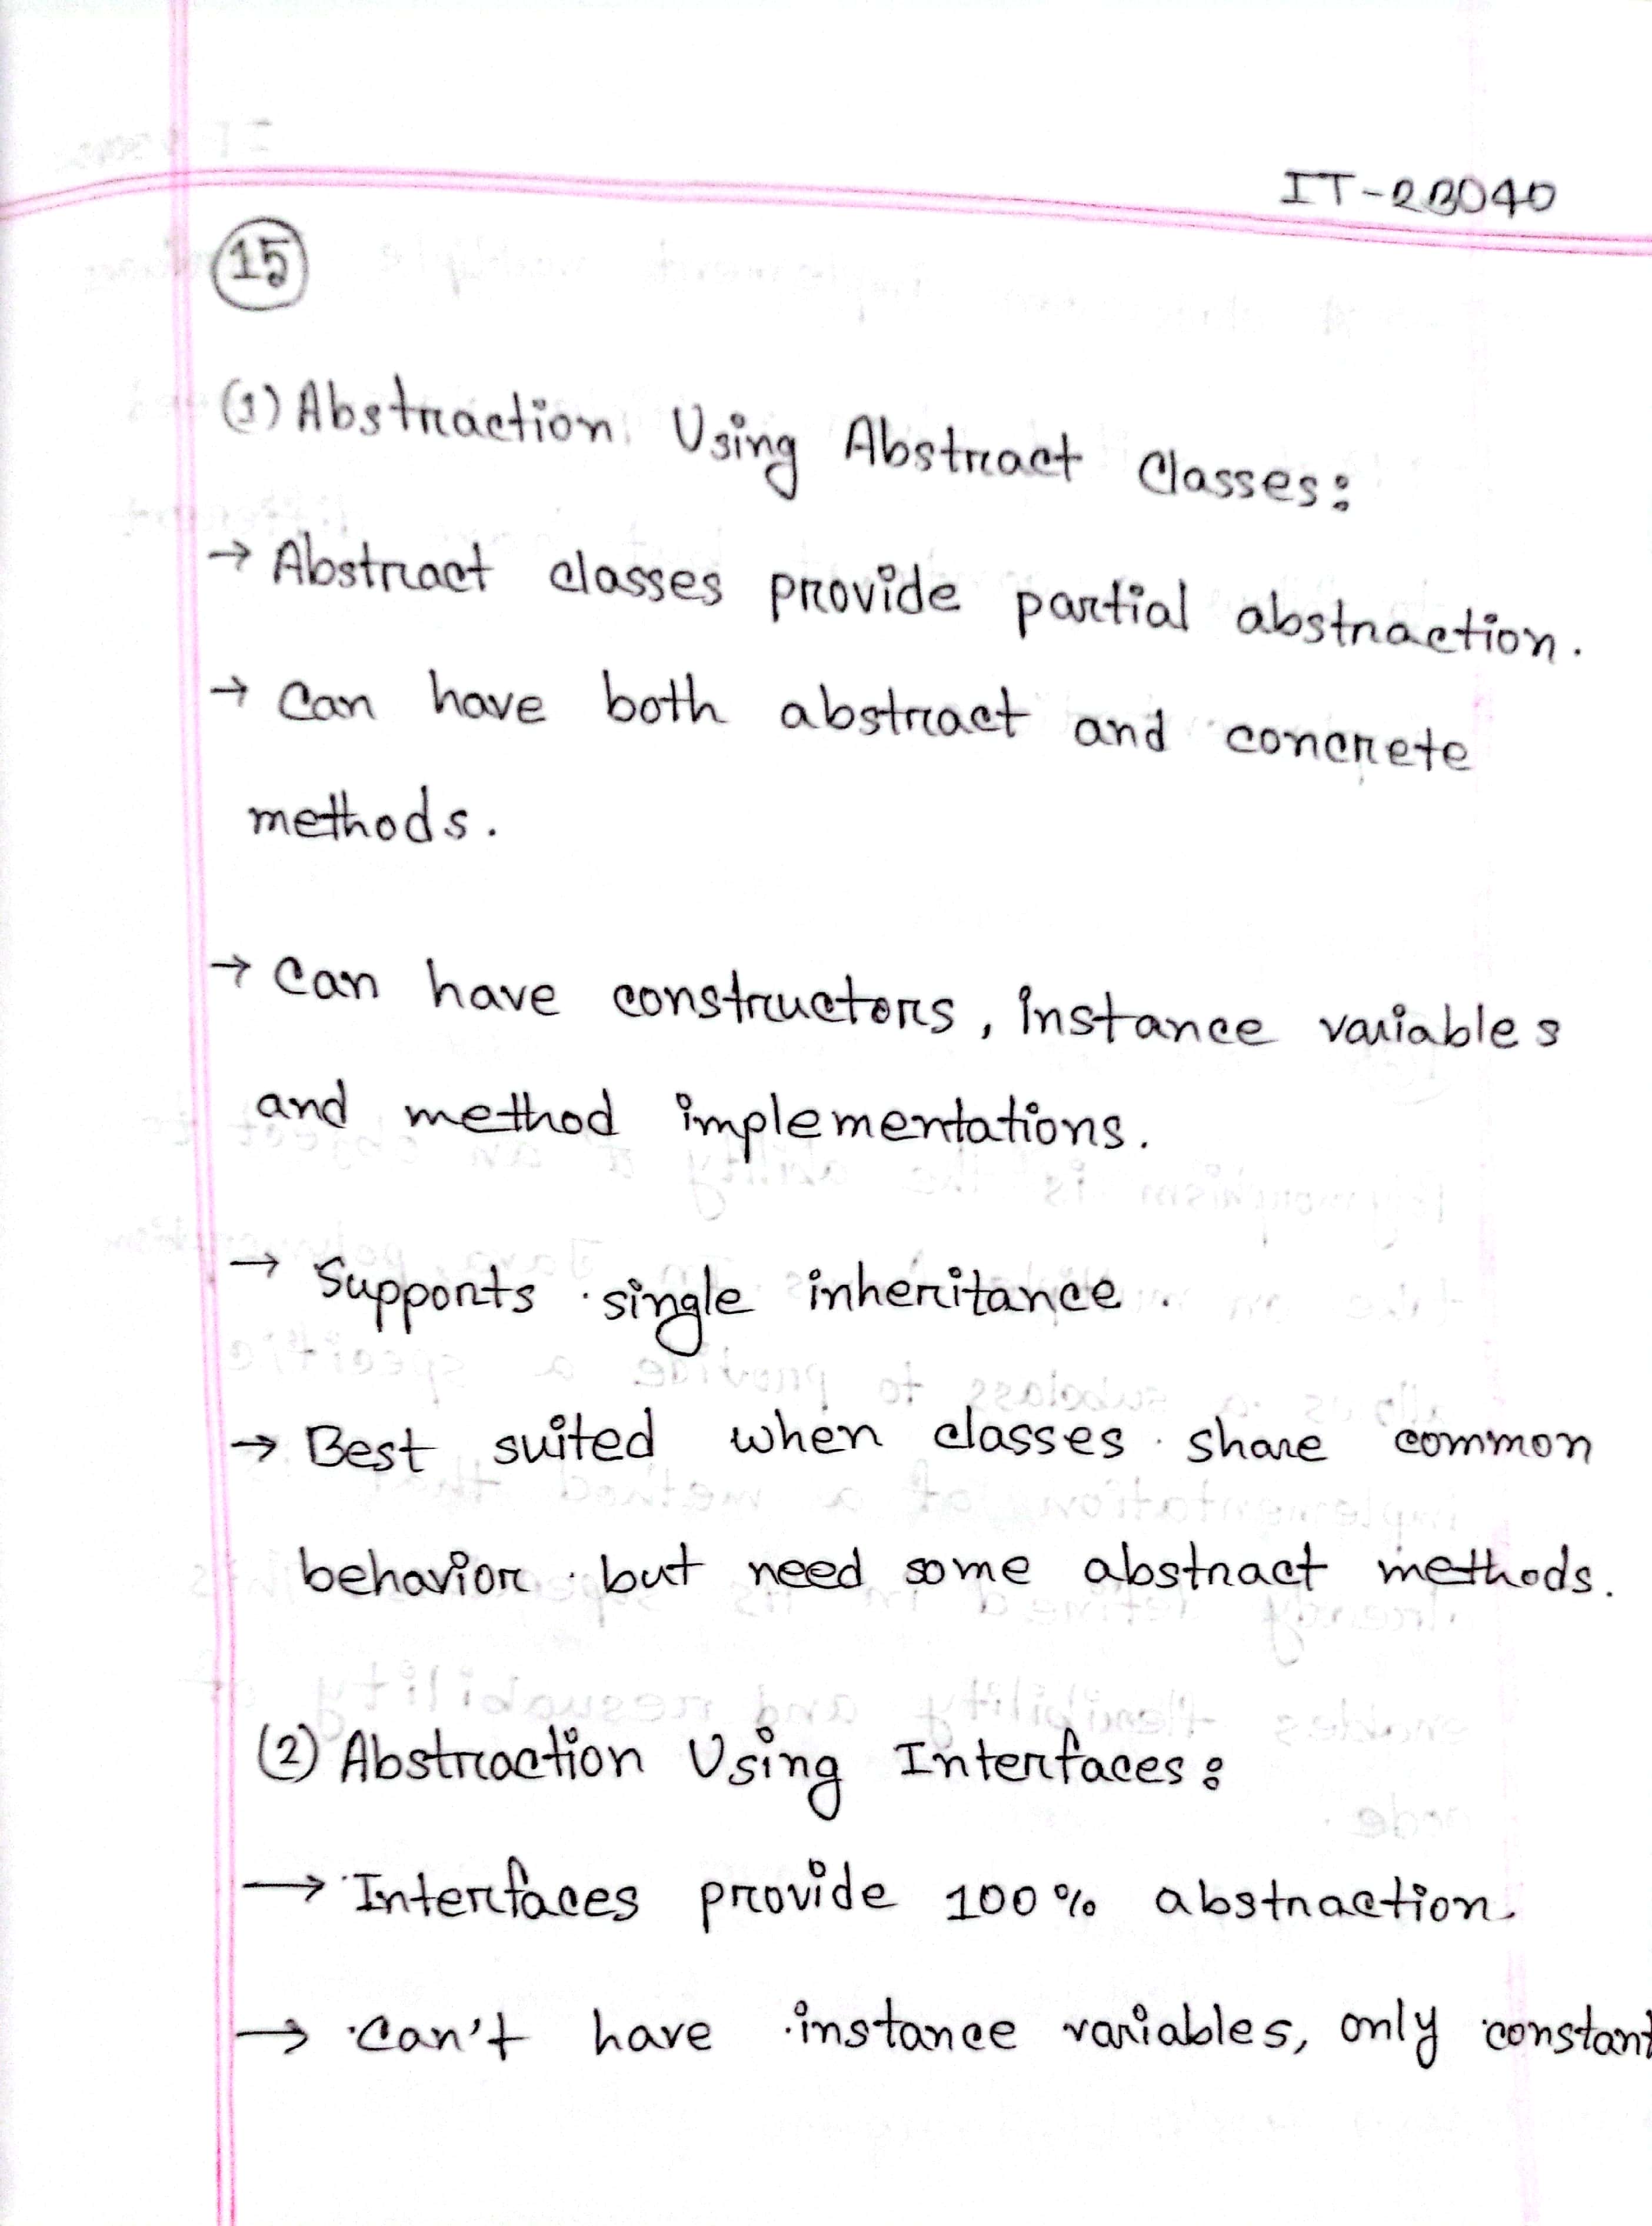 IT-23040
15
(1) Abstraction Using Abstract Classes:
→ Abstract classes provide partial abstraction.
→ Can have both abstract and concrete
methods.
→ Can have constructors, instance variables
and method implementations.
→ Supports single inheritance.
→ Best suited when classes share common
behavior but need some abstract methods.
(2) Abstraction Using Interfaces:
→ Interfaces provide 100% abstraction.
→ Can't have instance variables, only constant